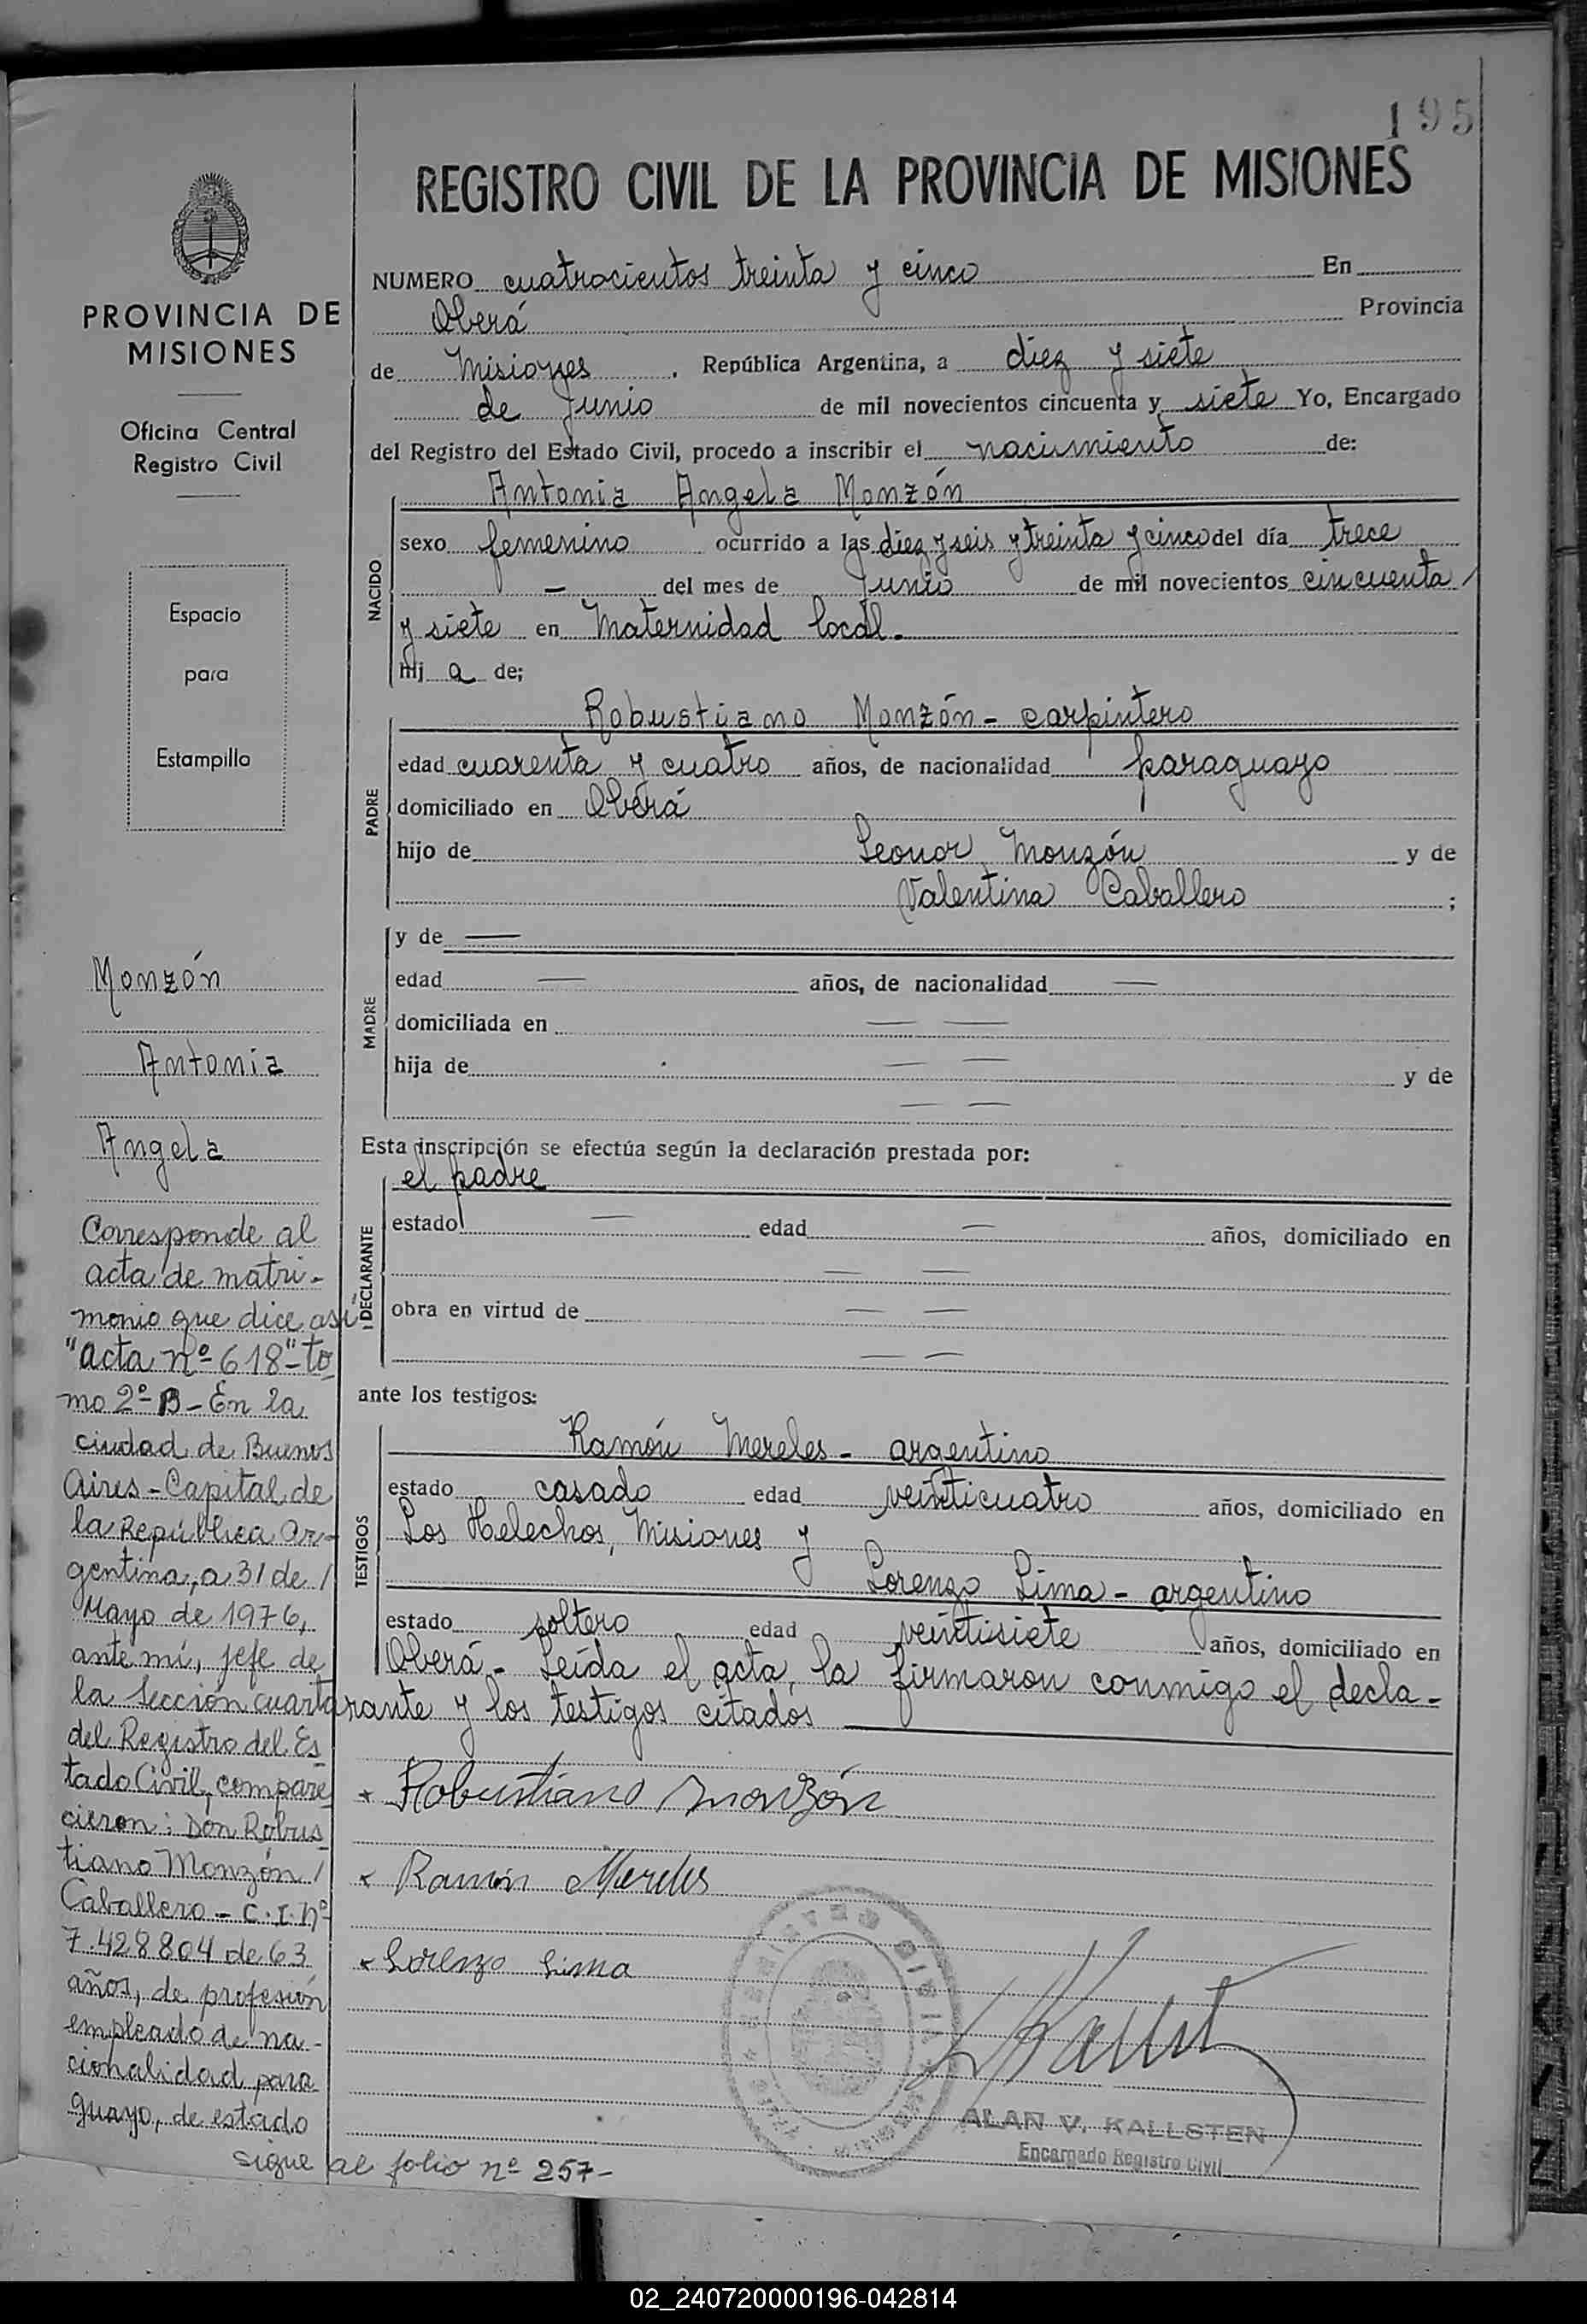 195
REGISTRO CIVIL DE LA PROVINCIA DE MISIONES
NUMERO cuatrocientos treinta y cinco En
Oberá Provincia
de Misiones, República Argentina, a diez y siete
de Junio de mil novecientos cincuenta y siete Yo, Encargado
del Registro del Estado Civil, procedo a inscribir el nacimiento de:
NACIDO
Antonia Angela Monzón
sexo femenino ocurrido a las diez y seis y treinta y cinco del día trece
— del mes de Junio de mil novecientos cincuenta /
y siete en Maternidad local.
hij a de;
PADRE
Robustiano Monzón - carpintero
edad cuarenta y cuatro años, de nacionalidad paraguayo
domiciliado en Oberá
hijo de Leonor Monzón y de
Valentina Caballero ;
MADRE
y de —
edad — años, de nacionalidad —
domiciliada en — —
hija de — — y de
— —
Esta inscripción se efectúa según la declaración prestada por:
DECLARANTE
el padre
estado — edad — años, domiciliado en
— —
obra en virtud de — —
— —
ante los testigos:
TESTIGOS
Ramón Mereles - argentino
estado casado edad veinticuatro años, domiciliado en
Los Helechos, Misiones y
Lorenzo Lima - argentino
estado soltero edad veintisiete años, domiciliado en
Oberá - Leída el acta, la firmaron conmigo el decla-
rante y los testigos citados
Robustiano Monzón
Ramón Mereles
Lorenzo Lima
ALAN V. KALLSTEN
Encargado Registro Civil
PROVINCIA DE
MISIONES
Oficina Central
Registro Civil
Espacio
para
Estampilla
Monzón
Antonia
Angela
Corresponde al
acta de matri-
monio que dice así
"acta nº 618"- to
mo 2º B - En la
ciudad de Buenos
Aires - Capital de
la República Ar-
gentina, a 31 de /
Mayo de 1976,
ante mí, jefe de
la Sección cuarta
del Registro del Es
tado Civil, compare
cieron: Don Robus
tiano Monzón /
Caballero - C.I. nº
7.428804 de 63
años, de profesión
empleado de na-
cionalidad para
guayo, de estado
sigue al folio nº 257-
02_240720000196-042814